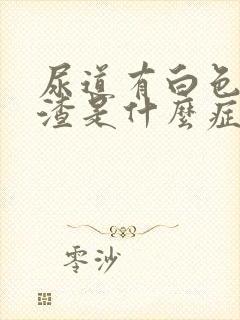 尿道有白色
渣是什麼症
零沙